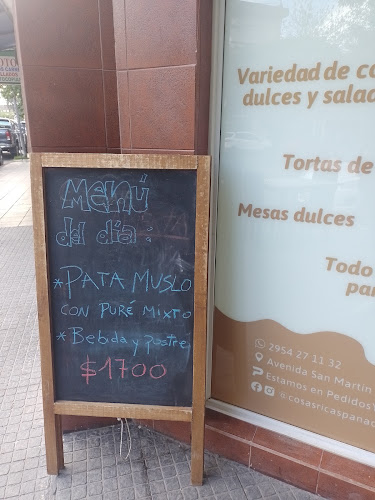 Menú
del día:
* PATA MUSLO
CON PURÉ MIXTO
* Bebida y postre
$1700
Variedad de
dulces y
Tortas de
Mesas dulces
Todo
2954 27 11 32
Avenida San Martin
Estamos en Pedidos